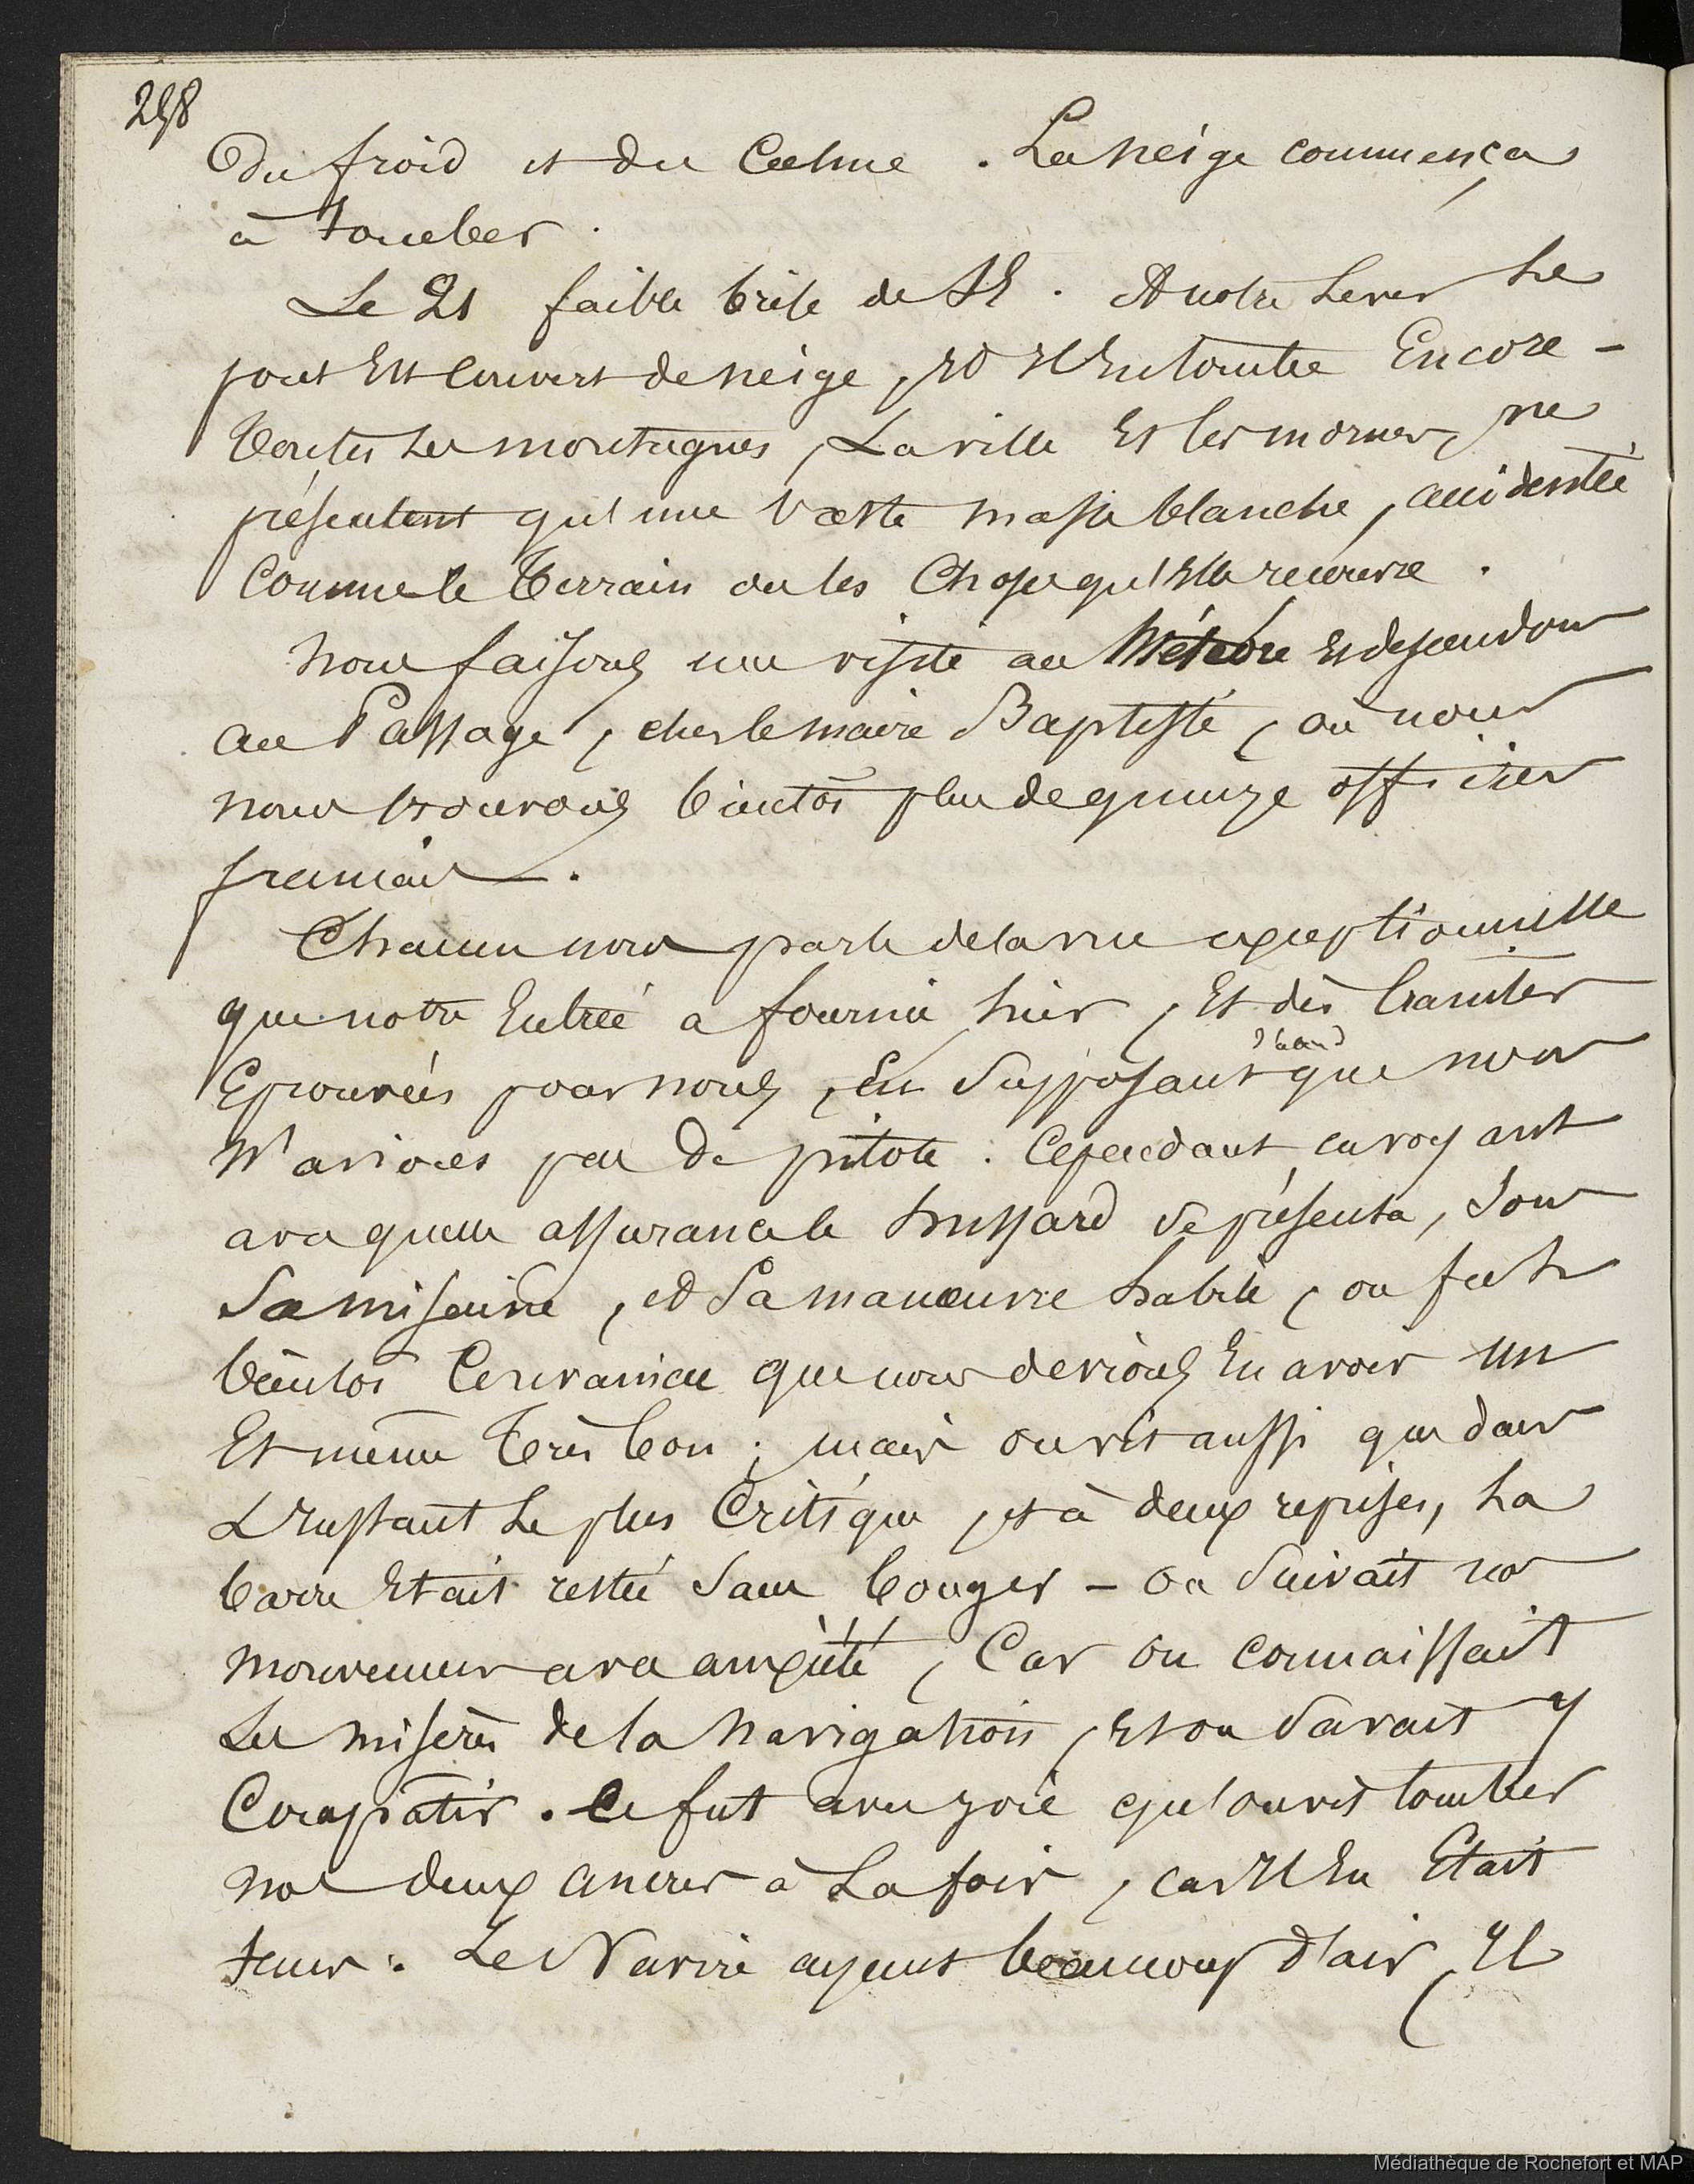 258
Du froid et du Calme. La neige commença
à tomber.
Le 21 faible brise de SE. A notre lever le
pont Est Couvert de neige, et Il En tombe Encore -
toutes les montagnes, La ville Et les mornes, ne
présentent qu'une vaste masse blanche, accidentée
Comme le terrain ou les Choses qu'Elle recouvre.
Nous faisons une visite au Météore Et descendons
au Passage, chez le maire Baptiste, où nous
nous trouvons bientôt plus de quinze officiers
français.
Chacun nous parle de la vue exceptionnelle
que notre Entrée a fournie hier, Et des craintes
Eprouvées pour nous, En Supposant d'abord que nous
N'avions pas de pilote. Cependant en voyant
avec quelle assurance le hussard se présenta, sous
Sa misaine, et Sa manœuvre habile, on fut
bientôt Convaincu que nous devions En avoir un
Et même très bon; mais on vit aussi que dans
L'Instant le plus Critique, et à deux reprises, la
barre Etait restée sans bouger - on Suivait nos
mouvemens avec anxiété, Car on connaissait
Les misères de la navigation, Et on savait y
Compâtir. Ce fut avec joie qu'on vit tomber
nos deux ancres à La fois, car Il En Etait
tems. Le Navire ayant beaucoup d'air, Il
Médiathèque de Rochefort et MAP